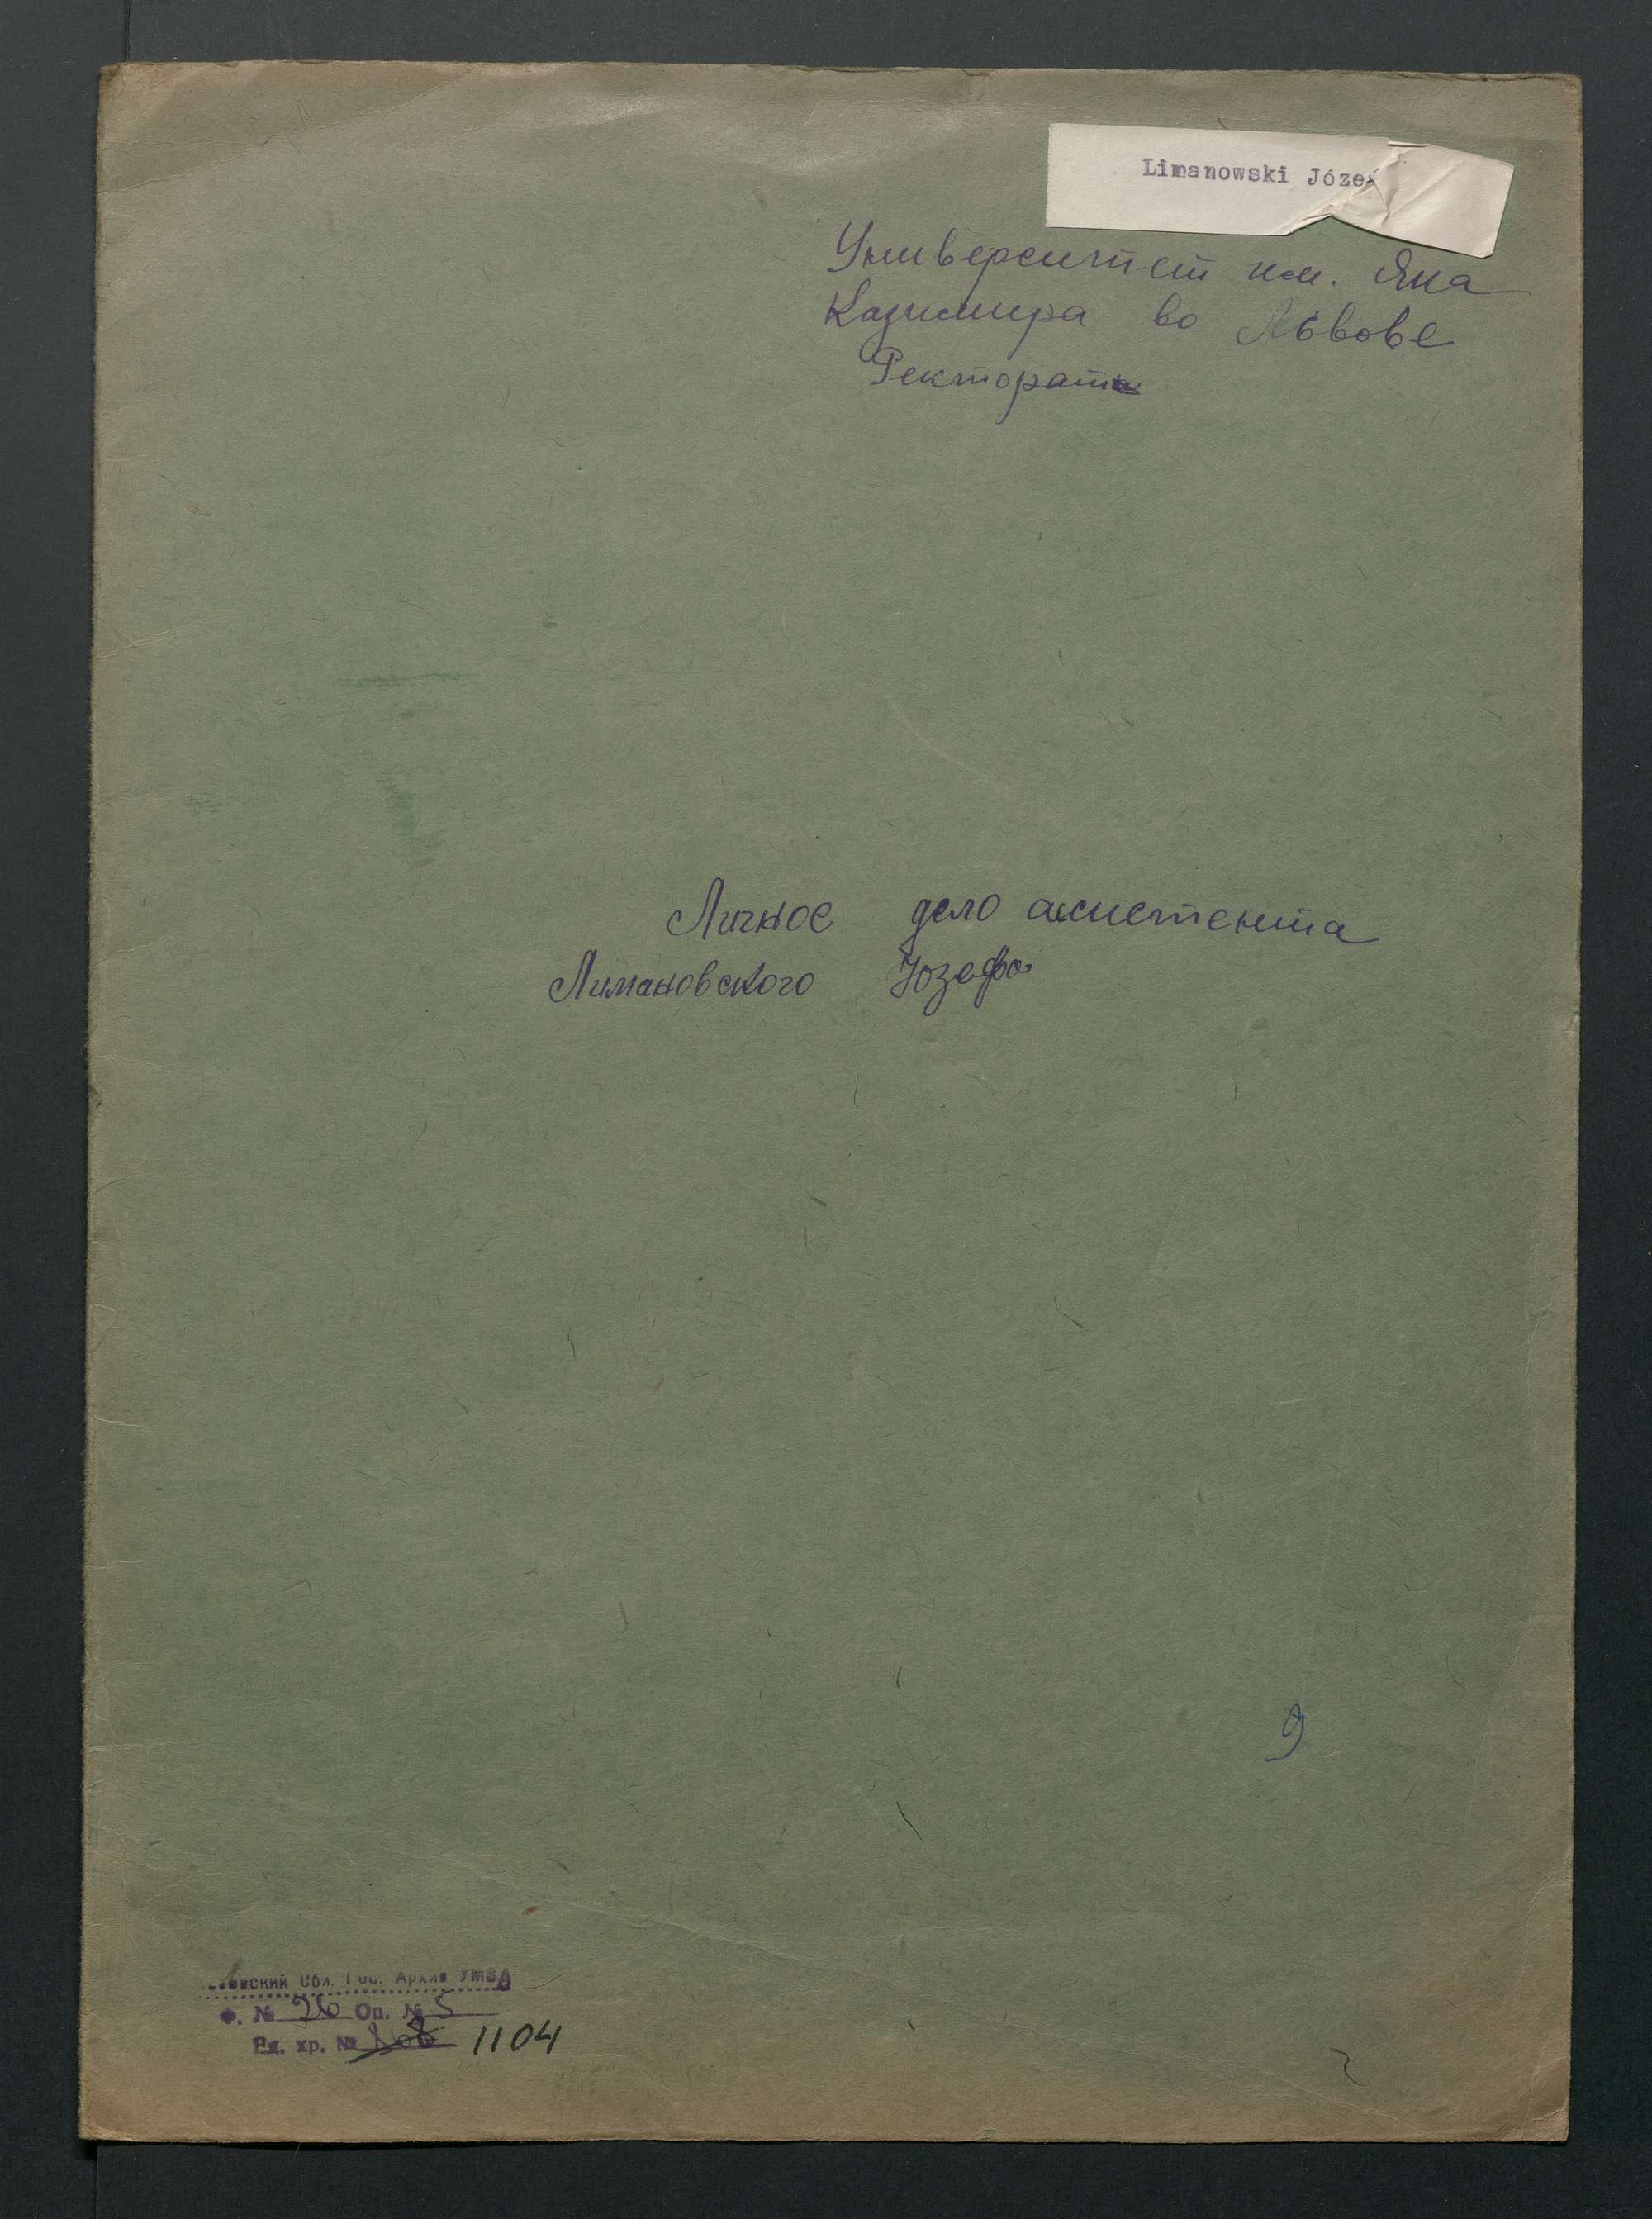 Limanowski Józef
Университет им. Яна
Казимира во Львове
Ректорат
Личное дело ассистента
Лимановского Юзефа
9
Обл. Гос. Архив УМВД
Ф. № 26 Оп. № 5
Ед. хр. № 1104